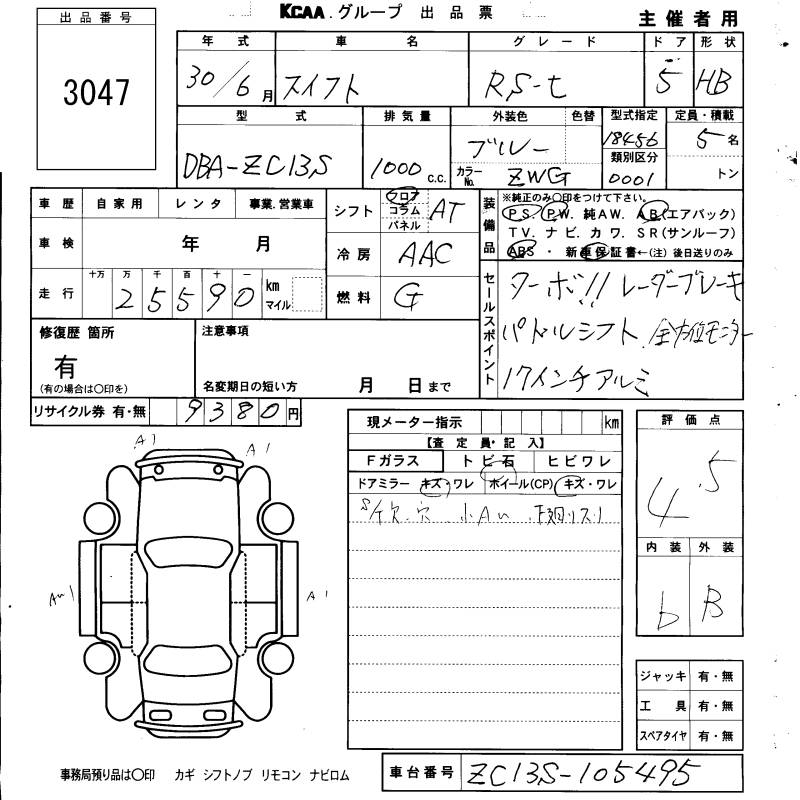 KCAA.グループ 出品票
主催者用
出品番号
3047
年式 車名 グレード ドア 形状
30/6月 スイフト RS-t 5 HB
型式 排気量 外装色 色替 型式指定 定員・積載
DBA-ZC13S 1000c.c. ブルー 18456 5名
カラーNo. ZWG 類別区分 0001 トン
車歴 自家用 レンタ 事業.営業車
車検 年 月
走行 十万 万 千 百 十 一
25590 km マイル
シフト フロア コラム パネル AT
冷房 AAC
燃料 G
装備品
※純正のみ〇印をつけて下さい。
PS. PW. 純AW. AB(エアバック)
TV. ナビ. カワ. SR(サンルーフ)
ABS ・ 新車保証書←(注) 後日送りのみ
セールスポイント
ターボ!! レーダーブレーキ
パドルシフト 全方位モニター
17インチアルミ
修復歴 箇所
有
(有の場合は〇印を)
注意事項
名変期日の短い方 月 日まで
リサイクル券 有・無 9380円
現メーター指示 km
【査定員・記入】
Fガラス トビ石 ヒビワレ
ドアミラー キズ・ワレ ホイール(CP) キズ・ワレ
穴 小AU スリ
評価点
4.5
内装 外装
b B
A1 A1
A1
ジャッキ 有・無
工具 有・無
スペアタイヤ 有・無
事務局預り品は〇印 カギ シフトノブ リモコン ナビロム
車台番号 ZC13S-105495